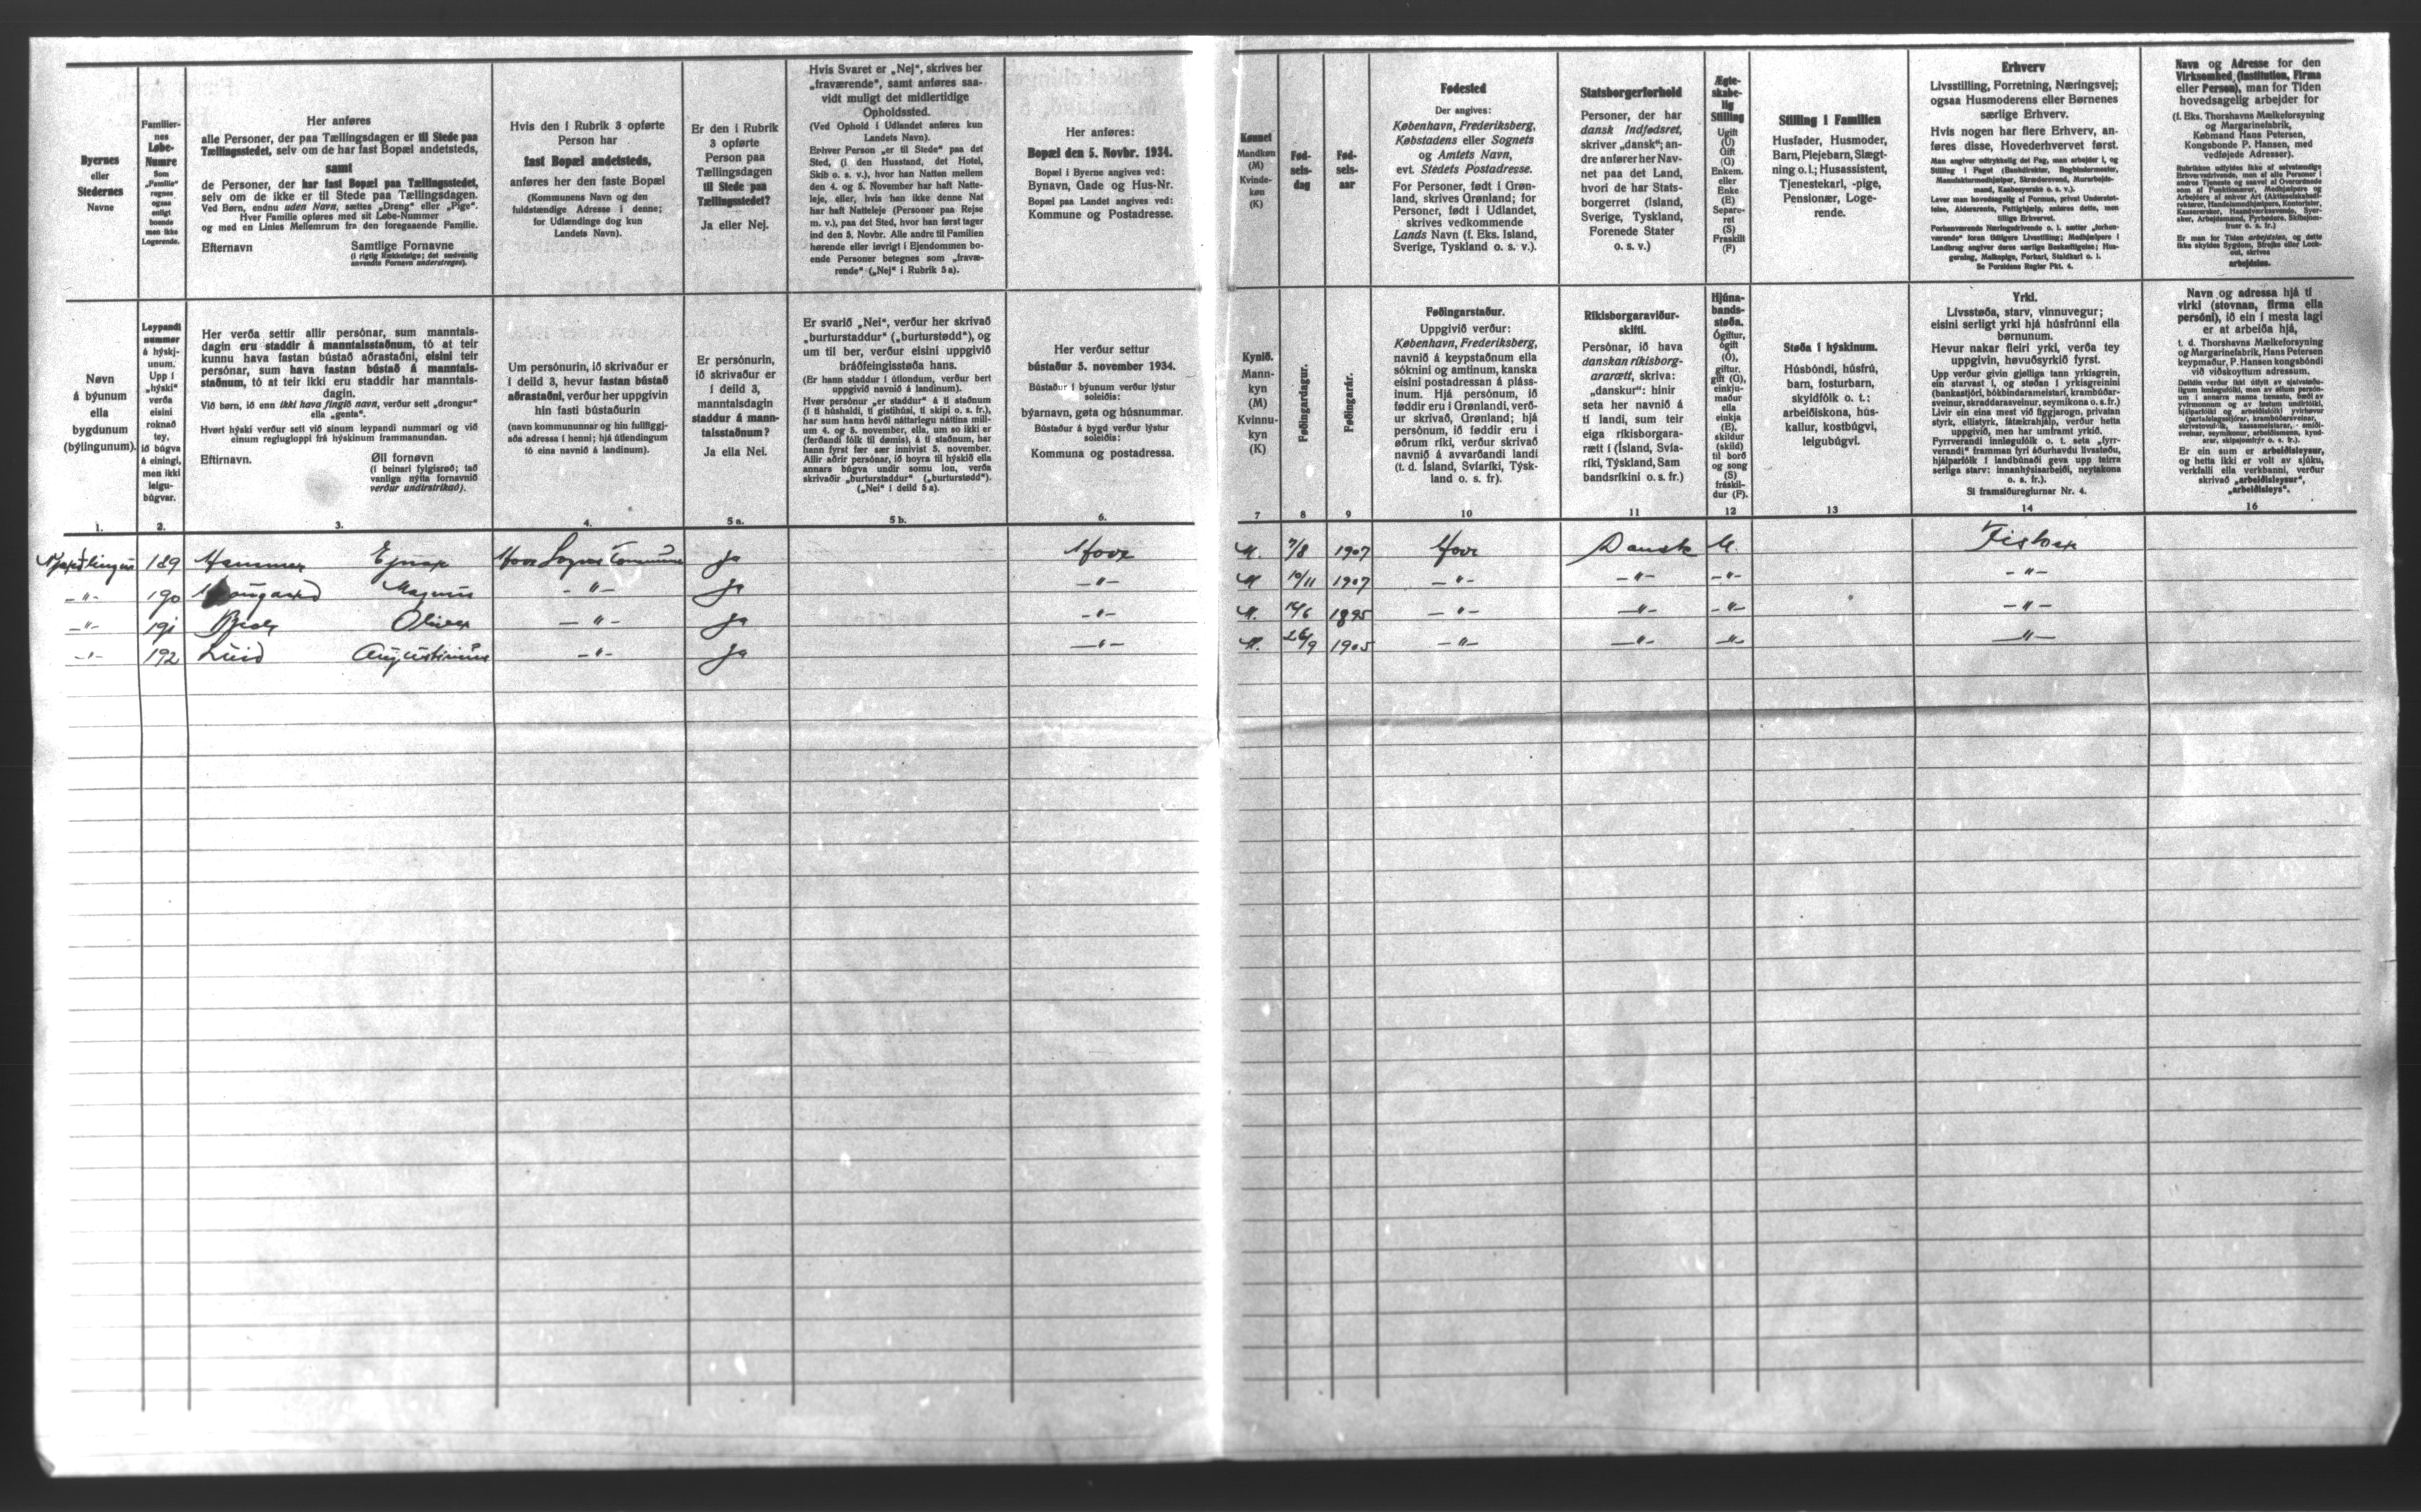 Byernes
eller
Stedernes
Navne
Familier-
nes
Løbe-
Numre
Som
„Familie“
regnes
ogsaa
enligt
boende
men ikke
Logerende.
Her anføres
alle Personer, der paa Tællingsdagen er til Stede paa
Tællingsstedet, selv om de har fast Bopæl andetsteds,
samt
de Personer, der har fast Bopæl paa Tællingsstedet,
selv om de ikke er til Stede paa Tællingsdagen.
Ved Børn, endnu uden Navn, sættes „Dreng“ eller „Pige“.
Hver Familie opføres med sit Løbe-Nummer
og med en Linies Mellemrum fra den foregaaende Familie.
Efternavn Samtlige Fornavne
(i rigtig Rækkefølge; det sædvanlig
anvendte Fornavn understreges).
Hvis den i Rubrik 3 opførte
Person har
fast Bopæl andetsteds,
anføres her den faste Bopæl
(Kommunens Navn og den
fuldstændige Adresse i denne;
for Udlændinge dog kun
Landets Navn).
Er den i Rubrik
3 opførte
Person paa
Tællingsdagen
til Stede paa
Tællingsstedet?
Ja eller Nej.
Hvis Svaret er „Nej“, skrives her
„fraværende“, samt anføres saa-
vidt muligt det midlertidige
Opholdssted.
(Ved Ophold i Udlandet anføres kun
Landets Navn).
Enhver Person „er til Stede“ paa det
Sted, (i den Husstand, det Hotel,
Skib o. s. v.), hvor han Natten mellem
den 4. og 5. November har haft Natte-
leje, eller, hvis han ikke denne Nat
har haft Natteleje (Personer paa Rejse
m. v.), paa det Sted, hvor han først tager
ind den 5. Novbr. Alle andre til Familien
hørende eller iøvrigt i Ejendommen bo-
ende Personer betegnes som „fravæ-
rende“ („Nej“ i Rubrik 5 a).
Her anføres:
Bopæl den 5. Novbr. 1934.
Bopæl i Byerne angives ved:
Bynavn, Gade og Hus-Nr.
Bopæl paa Landet angives ved:
Kommune og Postadresse.
Kønnet
Mandkøn
(M)
Kvinde-
køn
(K)
Fød-
sels-
dag
Fød-
sels-
aar
Fødested
Der angives:
København, Frederiksberg,
Købstadens eller Sognets
og Amtets Navn,
evt. Stedets Postadresse.
For Personer, født i Grøn-
land, skrives Grønland; for
Personer, født i Udlandet,
skrives vedkommende
Lands Navn (f. Eks. Island,
Sverige, Tyskland o. s. v.).
Statsborgerforhold
Personer, der har
dansk Indfødsret,
skriver „dansk“; an-
dre anfører her Nav-
net paa det Land,
hvori de har Stats-
borgerret (Island,
Sverige, Tyskland,
Forenede Stater
o. s. v.)
Ægte-
skabe-
lig
Stilling
Ugift
(U)
Gift
(G)
Enkem.
eller
Enke
(E)
Separe-
ret
(S)
Fraskilt
(F)
Stilling i Familien
Husfader, Husmoder,
Barn, Plejebarn, Slægt-
ning o. l.; Husassistent,
Tjenestekarl, -pige,
Pensionær, Loge-
rende.
Erhverv
Livsstilling, Forretning, Næringsvej;
ogsaa Husmoderens eller Børnenes
særlige Erhverv.
Hvis nogen har flere Erhverv, an-
føres disse, Hovederhvervet først.
Se Forsidens Regler Pkt. 4.
Navn og Adresse for den
Virksomhed (Institution, Firma
eller Person), man for Tiden
hovedsagelig arbejder for
(f. Eks. Thorshavns Mælkeforsyning
og Margarinefabrik,
Købmand Hans Petersen,
Kongsbonde P. Hansen, med
vedføjede Adresser).
arbejdsløs.
Nøvn
á býunum
ella
bygdunum
(býlingunum).
Leypandi
nummer
á hýskj-
unum.
Upp í
„hýski“
verða
eisini
roknað
tey,
ið búgva
á einingi,
men ikki
leigu-
búgvar.
Her verða settir allir persónar, sum manntals-
dagin eru staddir á manntalsstaðnum, tó at teir
kunnu hava fastan bústað aðrastaðni, eisini teir
persónar, sum hava fastan bústað á manntals-
staðnum, tó at teir ikki eru staddir har manntals-
dagin.
Við børn, ið enn ikki hava fingið navn, verður sett „drongur“
ella „genta“.
Hvørt hýski verður sett við sínum leypandi nummari og við
einum reglugloppi frá hýskinum frammanundan.
Eftirnavn. Øll fornøvn
(í beinari fylgisrøð; tað
vanliga nýtta fornavnið
verður undirstrikað).
Um persónurin, ið skrivaður er
í deild 3, hevur fastan bústað
aðrastaðni, verður her uppgivin
hin fasti bústaðurin
(navn kommununnar og hin fullfíggj-
aða adressa í henni; hjá útlendingum
tó eina navnið á landinum).
Er persónurin,
ið skrivaður er
í deild 3,
manntalsdagin
staddur á mann-
talsstaðnum?
Ja ella Nei.
Er svarið „Nei“, verður her skrivað
„burturstaddur“ („burturstødd“), og
um til ber, verður eisini uppgivið
bráðfeingisstøða hans.
(Er hann staddur í útlondum, verður bert
uppgivið navnið á landinum).
Hvør persónur „er staddur“ á tí staðnum
(í tí húshaldi, tí gistihúsi, tí skipi o. s. fr.),
har sum hann hevði náttarlegu náttina mill-
um 4. og 5. november, ella, um so ikki er
(ferðandi fólk til dømis), á tí staðnum, har
hann fyrst fær sær innivist 5. november.
Allir aðrir persónar, ið hoyra til hýskið ella
annars búgva undir somu lon, verða
skrivaðir „burturstaddur“ („burturstødd“).
(„Nei“ í deild 5 a).
Her verður settur
bústaður 5. november 1934.
Bústaður í býunum verður lýstur
soleiðis:
býarnavn, gøta og húsnummar.
Bústaður á bygd verður lýstur
soleiðis:
Kommuna og postadressa.
Kynið.
Mann-
kyn
(M)
Kvinnu-
kyn
(K)
Føðingardagur.
Føðingarár.
Føðingarstaður.
Uppgivið verður:
København, Frederiksberg,
navnið á keypstaðnum ella
sóknini og amtinum, kanska
eisini postadressan á pláss-
inum. Hjá persónum, ið
føddir eru í Grønlandi, verð-
ur skrivað, Grønland; hjá
persónum, ið føddir eru í
øðrum ríki, verður skrivað
navnið á avvarðandi landi
(t. d. Ísland, Svíaríki, Týsk-
land o. s. fr).
Ríkisborgaraviður-
skifti.
Persónar, ið hava
danskan ríkisborg-
ararætt, skriva:
„danskur“: hinir
seta her navnið á
tí landi, sum teir
eiga ríkisborgara-
rætt í (Ísland, Svía-
ríki, Týskland, Sam
bandsríkini o. s. fr.)
Hjúna-
bands-
støða.
Ógiftur,
ógift
(O),
giftur,
gift (G),
einkju-
maður
ella
einkja
(E),
skildur
(skild)
til borð
og song
(S)
fráskil-
dur (F).
Støða í hýskinum.
Húsbóndi, húsfrú,
barn, fosturbarn,
skyldfólk o. t.;
arbeiðiskona, hús-
kallur, kostbúgvi,
leigubúgvi.
Yrki.
Livsstøða, starv, vinnuvegur;
eisini serligt yrki hjá húsfrúnni ella
børnunum.
Hevur nakar fleiri yrki, verða tey
uppgivin, høvuðsyrkið fyrst.
Sí framsíðureglurnar Nr. 4.
Navn og adressa hjá tí
virki (stovnan, firma ella
persóni), ið ein í mesta lagi
er at arbeiða hjá,
t. d. Thorshavns Mælkeforsyning
og Margarinefabrik, Hans Petersen
keypmaður, P. Hansen kongsbóndi
við viðskoyttum adressum.
Er ein er arbeiðisleysur,
og hetta ikki er volt av sjúku,
verkfalli ella verkbanni, verður
skrivað „arbeiðisleysur“,
„arbeiðisleys“.
1. 2. 3. 4. 5 a. 5 b. 6. 7 8 9 10 11 12 13 14 16
189 Hammer Ejnar Hove Sogns Commune Ja Hove M. 7/8 1907 Hove Dansk U. Fisker
-"- 190 Magnus -"- Ja -"- M 10/11 1907 -"- -"- -"- -"-
-"- 191 Oliver -"- Ja -"- M. 1895 -"- -"- -"- -"-
-"- 192 Augustinus -"- Ja -"- M. 26/9 1905 -"- -"- -"- -"-